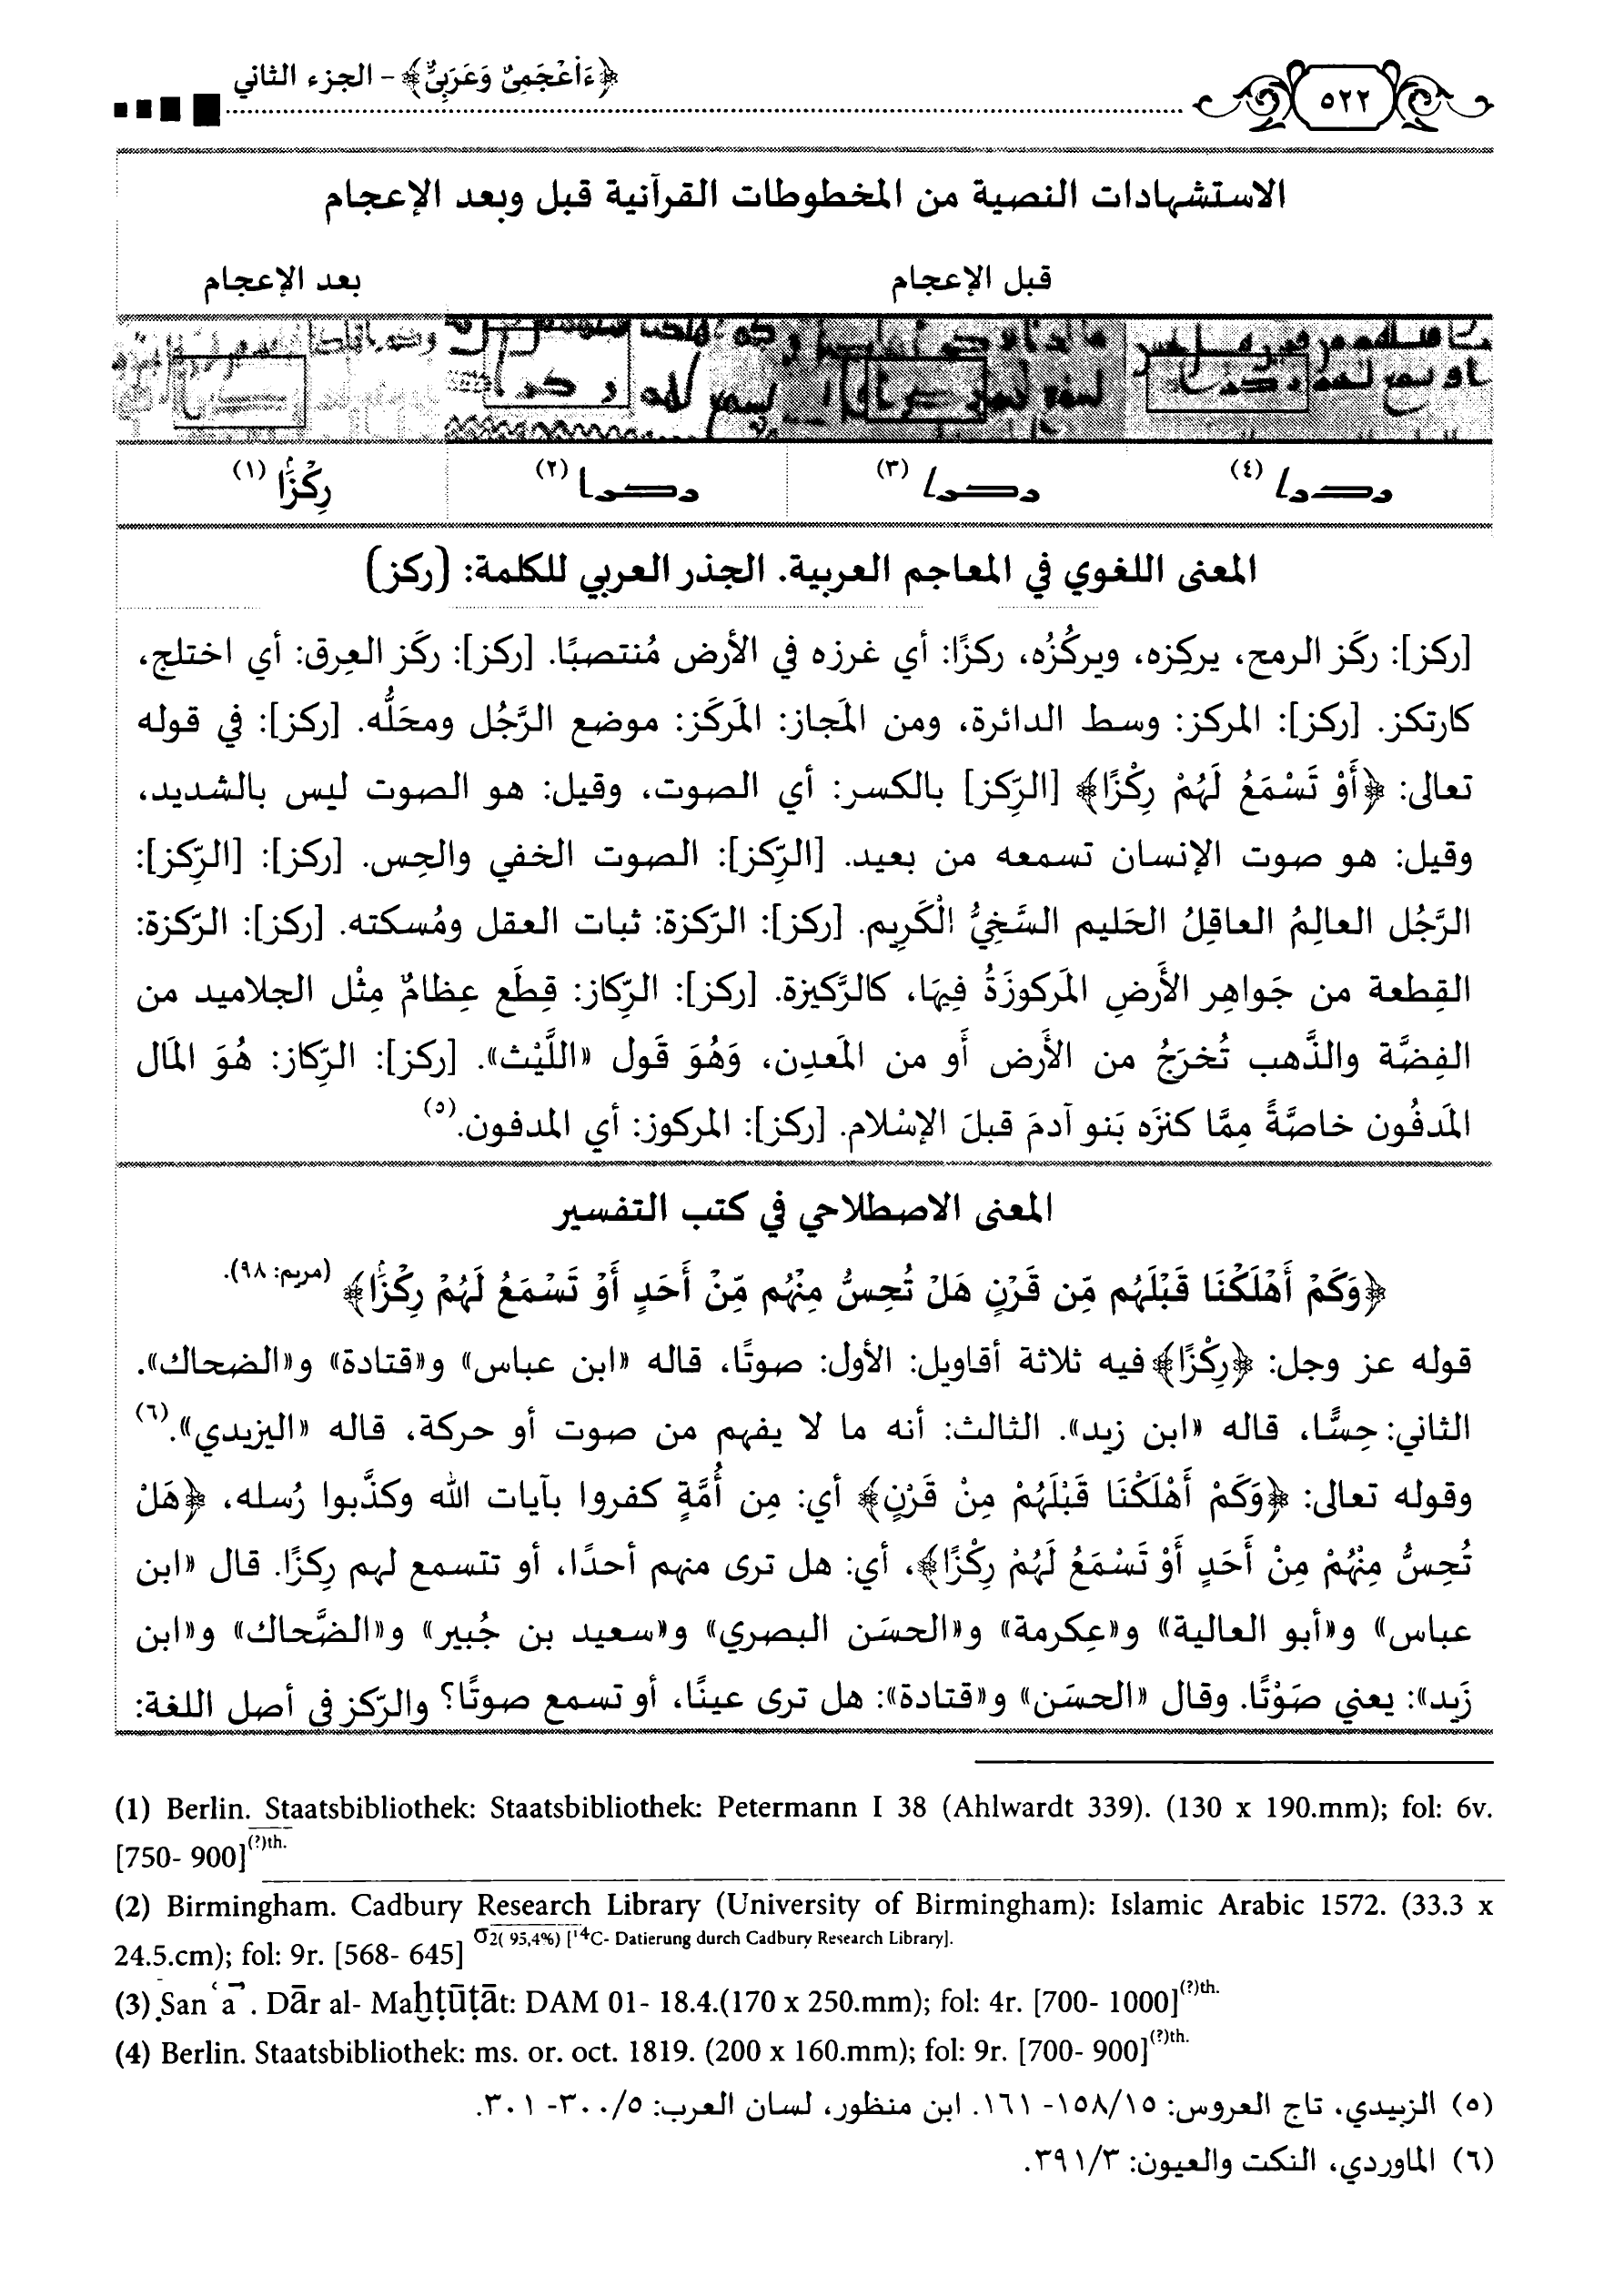 ﴿ءَا۬عْجَمِىٌّ وَعَرَبِىٌّ﴾ - الجزء الثاني
٥٢٢
الاستشهادات النصية من المخطوطات القرآنية قبل وبعد الإعجام
قبل الإعجام
بعد الإعجام
(٤)
(٣)
(٢)
رِكْزًا (١)
المعنى اللغوي في المعاجم العربية. الجذر العربي للكلمة: (ركز)
[ركز]: ركَز الرمح، يركِزه، ويركُزُه، ركزًا: أي غرزه في الأرض مُنتصبًا. [ركز]: ركَز العِرق: أي اختلج،
كارتكز. [ركز]: المركز: وسط الدائرة، ومن المَجاز: المَركَز: موضع الرَّجُل ومحَلُّه. [ركز]: في قوله
تعالى: ﴿أَوْ تَسْمَعُ لَهُمْ رِكْزًا﴾ [الرِّكز] بالكسر: أي الصوت، وقيل: هو الصوت ليس بالشديد،
وقيل: هو صوت الإنسان تسمعه من بعيد. [الرِّكز]: الصوت الخفي والحِس. [ركز]: [الرِّكز]:
الرَّجُل العالِمُ العاقِلُ الحَليم السَّخِيُّ الْكَرِيم. [ركز]: الرّكزة: ثبات العقل ومُسكته. [ركز]: الرّكزة:
القِطعة من جَواهِر الأَرضِ المَركوزَةُ فِيهَا، كالرَّكيزة. [ركز]: الرِّكاز: قِطَع عِظامٌ مِثْل الجلاميد من
الفِضَّة والذَّهب تُخرَجُ من الأَرض أَو من المَعدِن، وَهُوَ قَول «اللَّيْث». [ركز]: الرِّكاز: هُوَ المَال
المَدفُون خاصَّةً مِمَّا كنزَه بَنو آدمَ قبلَ الإسْلام. [ركز]: المركوز: أي المدفون.(٥)
المعنى الاصطلاحي في كتب التفسير
﴿وَكَمْ أَهْلَكْنَا قَبْلَهُم مِّن قَرْنٍ هَلْ تُحِسُّ مِنْهُم مِّنْ أَحَدٍ أَوْ تَسْمَعُ لَهُمْ رِكْزًا﴾ (مريم: ٩٨).
قوله عز وجل: ﴿رِكْزًا﴾ فيه ثلاثة أقاويل: الأول: صوتًا، قاله «ابن عباس» و«قتادة» و«الضحاك».
الثاني: حِسًّا، قاله «ابن زيد». الثالث: أنه ما لا يفهم من صوت أو حركة، قاله «اليزيدي».(٦)
وقوله تعالى: ﴿وَكَمْ أَهْلَكْنَا قَبْلَهُمْ مِنْ قَرْنٍ﴾ أي: مِن أُمَّةٍ كفروا بآيات الله وكذَّبوا رُسله، ﴿هَلْ
تُحِسُّ مِنْهُمْ مِنْ أَحَدٍ أَوْ تَسْمَعُ لَهُمْ رِكْزًا﴾، أي: هل ترى منهم أحدًا، أو تتسمع لهم رِكزًا. قال «ابن
عباس» و«أبو العالية» و«عِكرمة» و«الحسَن البصري» و«سعيد بن جُبير» و«الضَّحاك» و«ابن
زَيد»: يعني صَوْتًا. وقال «الحسَن» و«قتادة»: هل ترى عينًا، أو تسمع صوتًا؟ والرّكز في أصل اللغة:
(1) Berlin. Staatsbibliothek: Staatsbibliothek: Petermann I 38 (Ahlwardt 339). (130 x 190.mm); fol: 6v.
[750- 900](?)th.
(2) Birmingham. Cadbury Research Library (University of Birmingham): Islamic Arabic 1572. (33.3 x
24.5.cm); fol: 9r. [568- 645] σ2( 95,4%) [14C- Datierung durch Cadbury Research Library].
(3) Ṣanʿāʾ. Dār al- Maḫṭūṭāt: DAM 01- 18.4.(170 x 250.mm); fol: 4r. [700- 1000](?)th.
(4) Berlin. Staatsbibliothek: ms. or. oct. 1819. (200 x 160.mm); fol: 9r. [700- 900](?)th.
(٥) الزبيدي، تاج العروس: ١٥٨/١٥- ١٦١. ابن منظور، لسان العرب: ٣٠٠/٥- ٣٠١.
(٦) الماوردي، النكت والعيون: ٣٩١/٣.